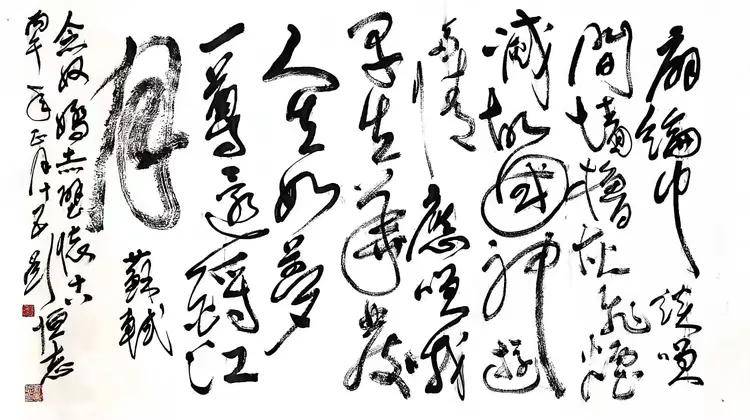 扇綸巾談笑
間墻櫓灰飛煙
滅故國神遊
多情應笑我
早生華發
人生如夢
一尊還酹江
月
蘇軾
念奴嬌赤壁懷古
丙午年正月十五
恒志